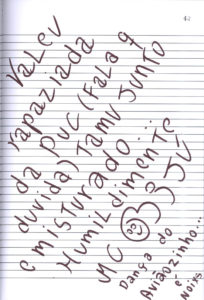 Valeu
rapaziada
da PUC (Fala q
duvida) TAMU JUNTO
e misturado...
Humildimente
MC JÚ
Dança do
Aviãozinho...
é
Nóis